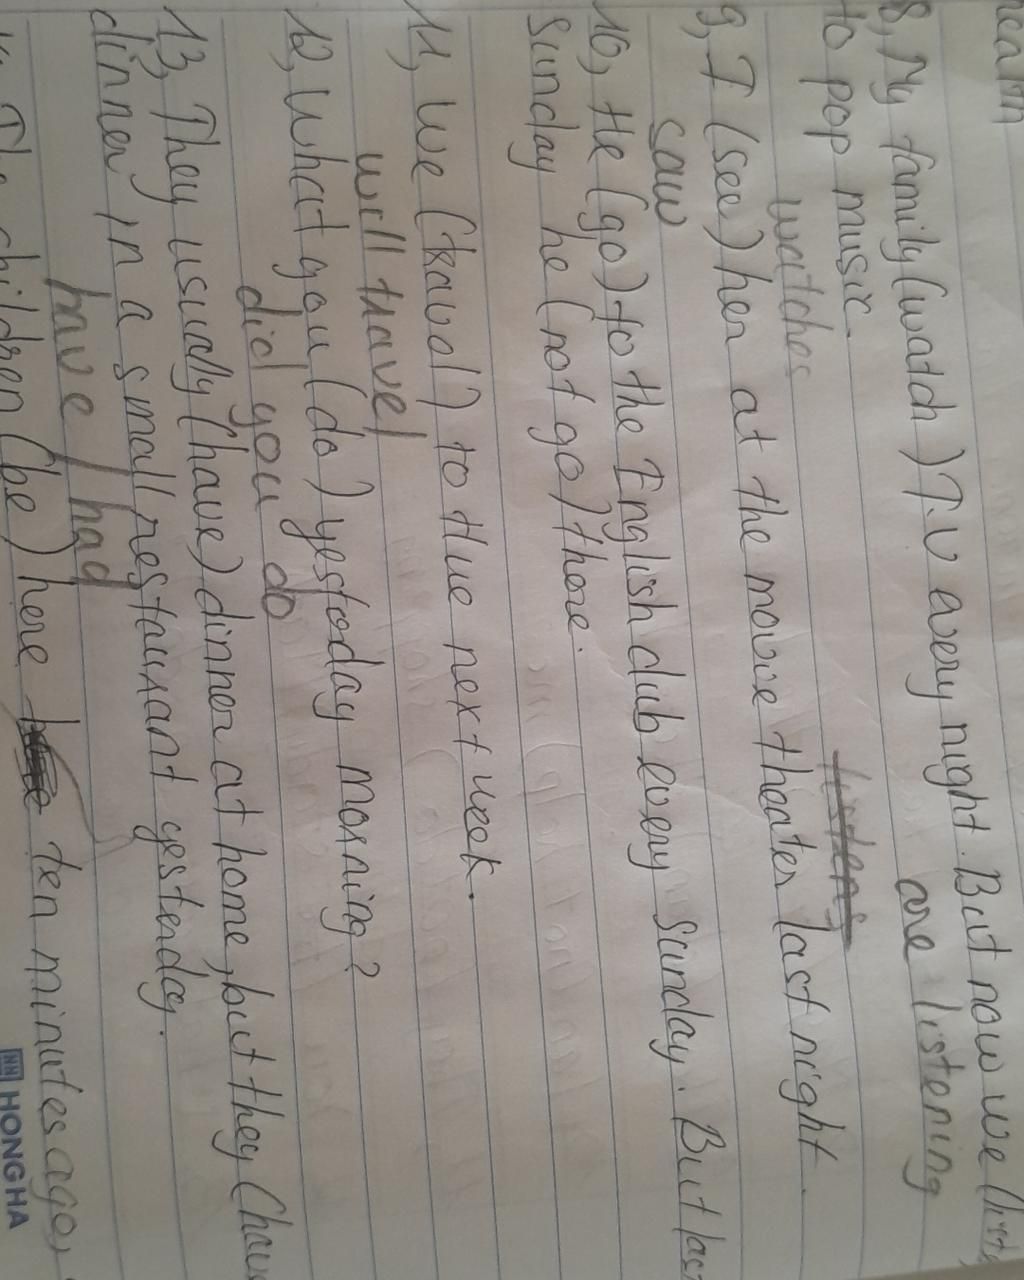 8, My family (watch) T.V every night. But now we
are listening
to pop music.
watches listens
9, I (see) her at the movie theater last night.
saw
10, He (go) to the English club every sunday. But
Sunday he (not go) there.
11, We (travel) to Hue next week.
will travel
12, What you (do) yesterday morning?
did you do
13, They usually (have) dinner at home, but they
dinner in a small restaurant yesterday.
have / had
The children (be) here ten minutes ago,
HONG HA